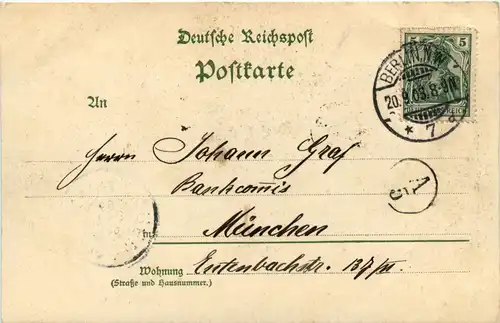 Deutsche Reichspost
Postkarte
5 5
BERLIN N.W.
* 7
An
Herrn Johann Graf
Bankcomis
A
5
in
München
Wohnung Entenbachstr.
(Straße und Hausnummer.)